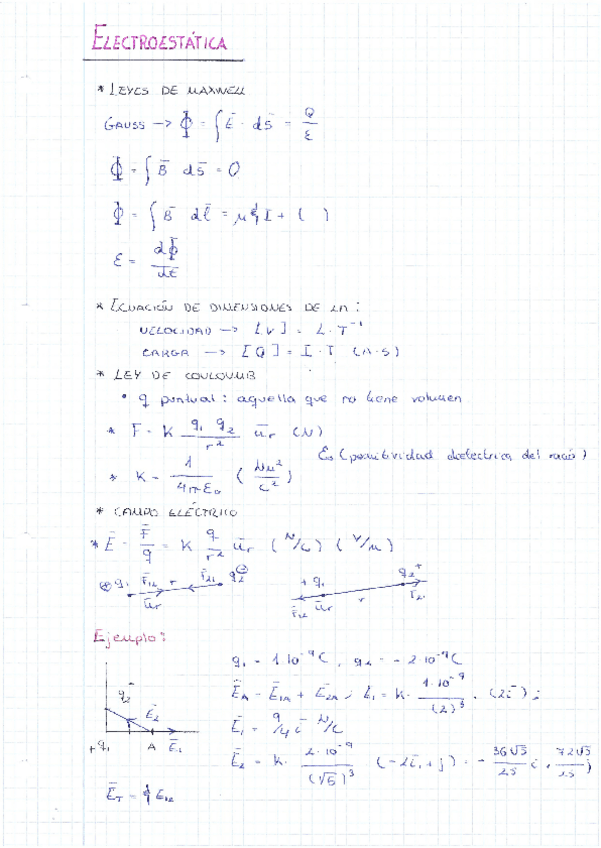 ELECTROESTÁTICA
* LEYES DE MAXWELL
GAUSS -> Φ = ∫ Ē · ds̄ = Q/ε
Φ = ∫ B̄ ds̄ = 0
Φ = ∫ B̄ dl̄ = μ I + ( )
ε = dΦ/dt
* ECUACIÓN DE DIMENSIONES DE LA :
VELOCIDAD -> [V] = L · T⁻¹
CARGA -> [Q] = I · T (A·S)
* LEY DE COULOUMB
• q puntual : aquella que no tiene volumen
* F = K q₁ q₂/r² ūr (N)
εo (permitividad dielectrica del vacío)
* K = 1/4πεo (Nm²/C²)
* CAMPO ELÉCTRICO
* Ē = F̄/q = K q/r² ūr (N/C) (V/m)
⊕ q₁ F̄₁₂ r F̄₂₁ q₂ ⊖
ūr
+ q₁ r q₂ +
F̄₁₂ ūr F̄₂₁
Ejemplo :
q₁ = 1·10⁻⁹ C , q₂ = -2·10⁻⁹ C
ĒA = Ē1A + Ē2A ; E₁ = K · 1·10⁻⁹/(2)³ · (2ī) ;
Ē₁ = 9/4 ī N/C
Ē₂ = K · 2·10⁻⁹/(√5)³ (-2ī, + j) = - 36√5/25 i , 72√5/25 j
q₂⁻
Ē₂
+q₁ A Ē₁
ĒT =